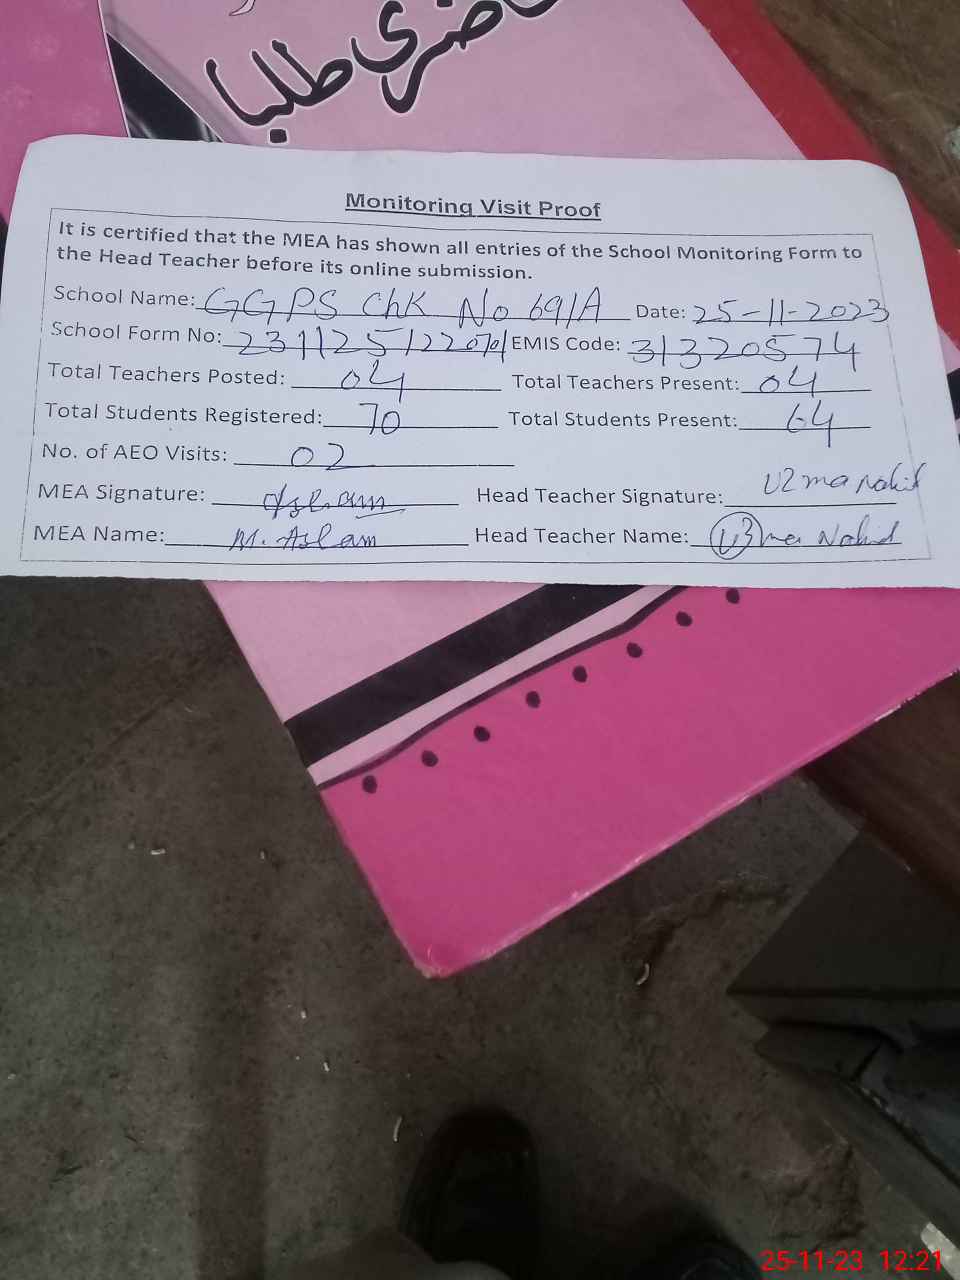 حاضری طلبا
Monitoring Visit Proof
It is certified that the MEA has shown all entries of the School Monitoring Form to
the Head Teacher before its online submission.
School Name: GGPS Chk No 69/A Date: 25-11-2023
School Form No: EMIS Code: 31320574
Total Teachers Posted: 04 Total Teachers Present: 04
Total Students Registered: 70 Total Students Present: 64
No. of AEO Visits: 02
MEA Signature: Aslam Head Teacher Signature: Uzma Nahid
MEA Name: M. Aslam Head Teacher Name: Uzma Nahid
25-11-23 12:21